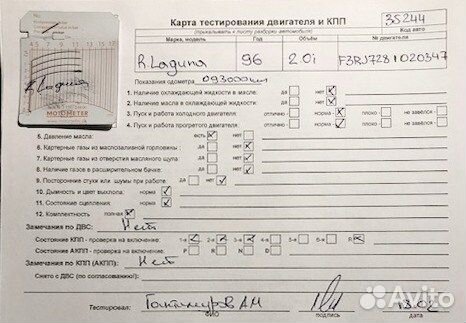 Карта тестирования двигателя и КПП
(прикалывать к листу разборки автомобиля)
35244
Код авто
Марка, модель
Год
Объём
№ двигателя
R Laguna
96
2.0i
F3RJ728 1020347
Показания одометра 093000км
1. Наличие охлаждающей жидкости в масле: да нет
2. Наличие масла в охлаждающей жидкости: да нет
3. Пуск и работа холодного двигателя: отлично нормально плохо не завёлся
4. Пуск и работа прогретого двигателя: отлично нормально плохо не завёлся
R Laguna
MOTOMETER
5. Давление масла: есть нет
6. Картерные газы из маслозаливной горловины: да нет
7. Картерные газы из отверстия масляного щупа: да нет
8. Наличие газов в расширительном бачке: да нет
9. Посторонние стуки или шумы при работе да нет
10. Дымность и цвет выхлопа: норма
11. Состояние сцепления: норма
12. Комплектность полная
Замечания по ДВС: Нет
Состояние КПП - проверка на включение: 1-я 2-я 3-я 4-я 5-я 6-я R
Состояние АКПП - проверка на включение: P R N D
Замечания по КПП (АКПП): Нет
Снято с ДВС (по согласованию):
Тестировал:
АМ
13.02
ФИО
подпись
дата
Avito